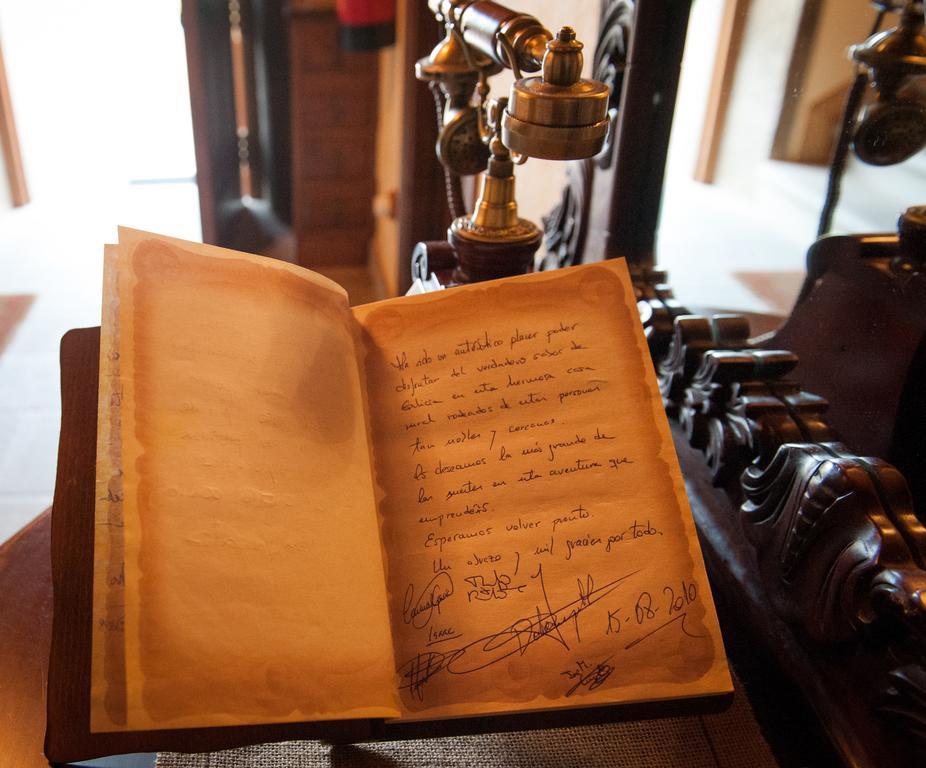 Ha sido un auténtico placer poder
disfrutar del verdadero sabor de
Galicia en esta hermosa casa
rural rodeados de estas personas
tan nobles y cercanas.
Os deseamos la más grande de
las suertes en esta aventura que
emprendéis.
Esperamos volver pronto.
Un abrazo y mil gracias por todo.
Isaac
15-08-2010